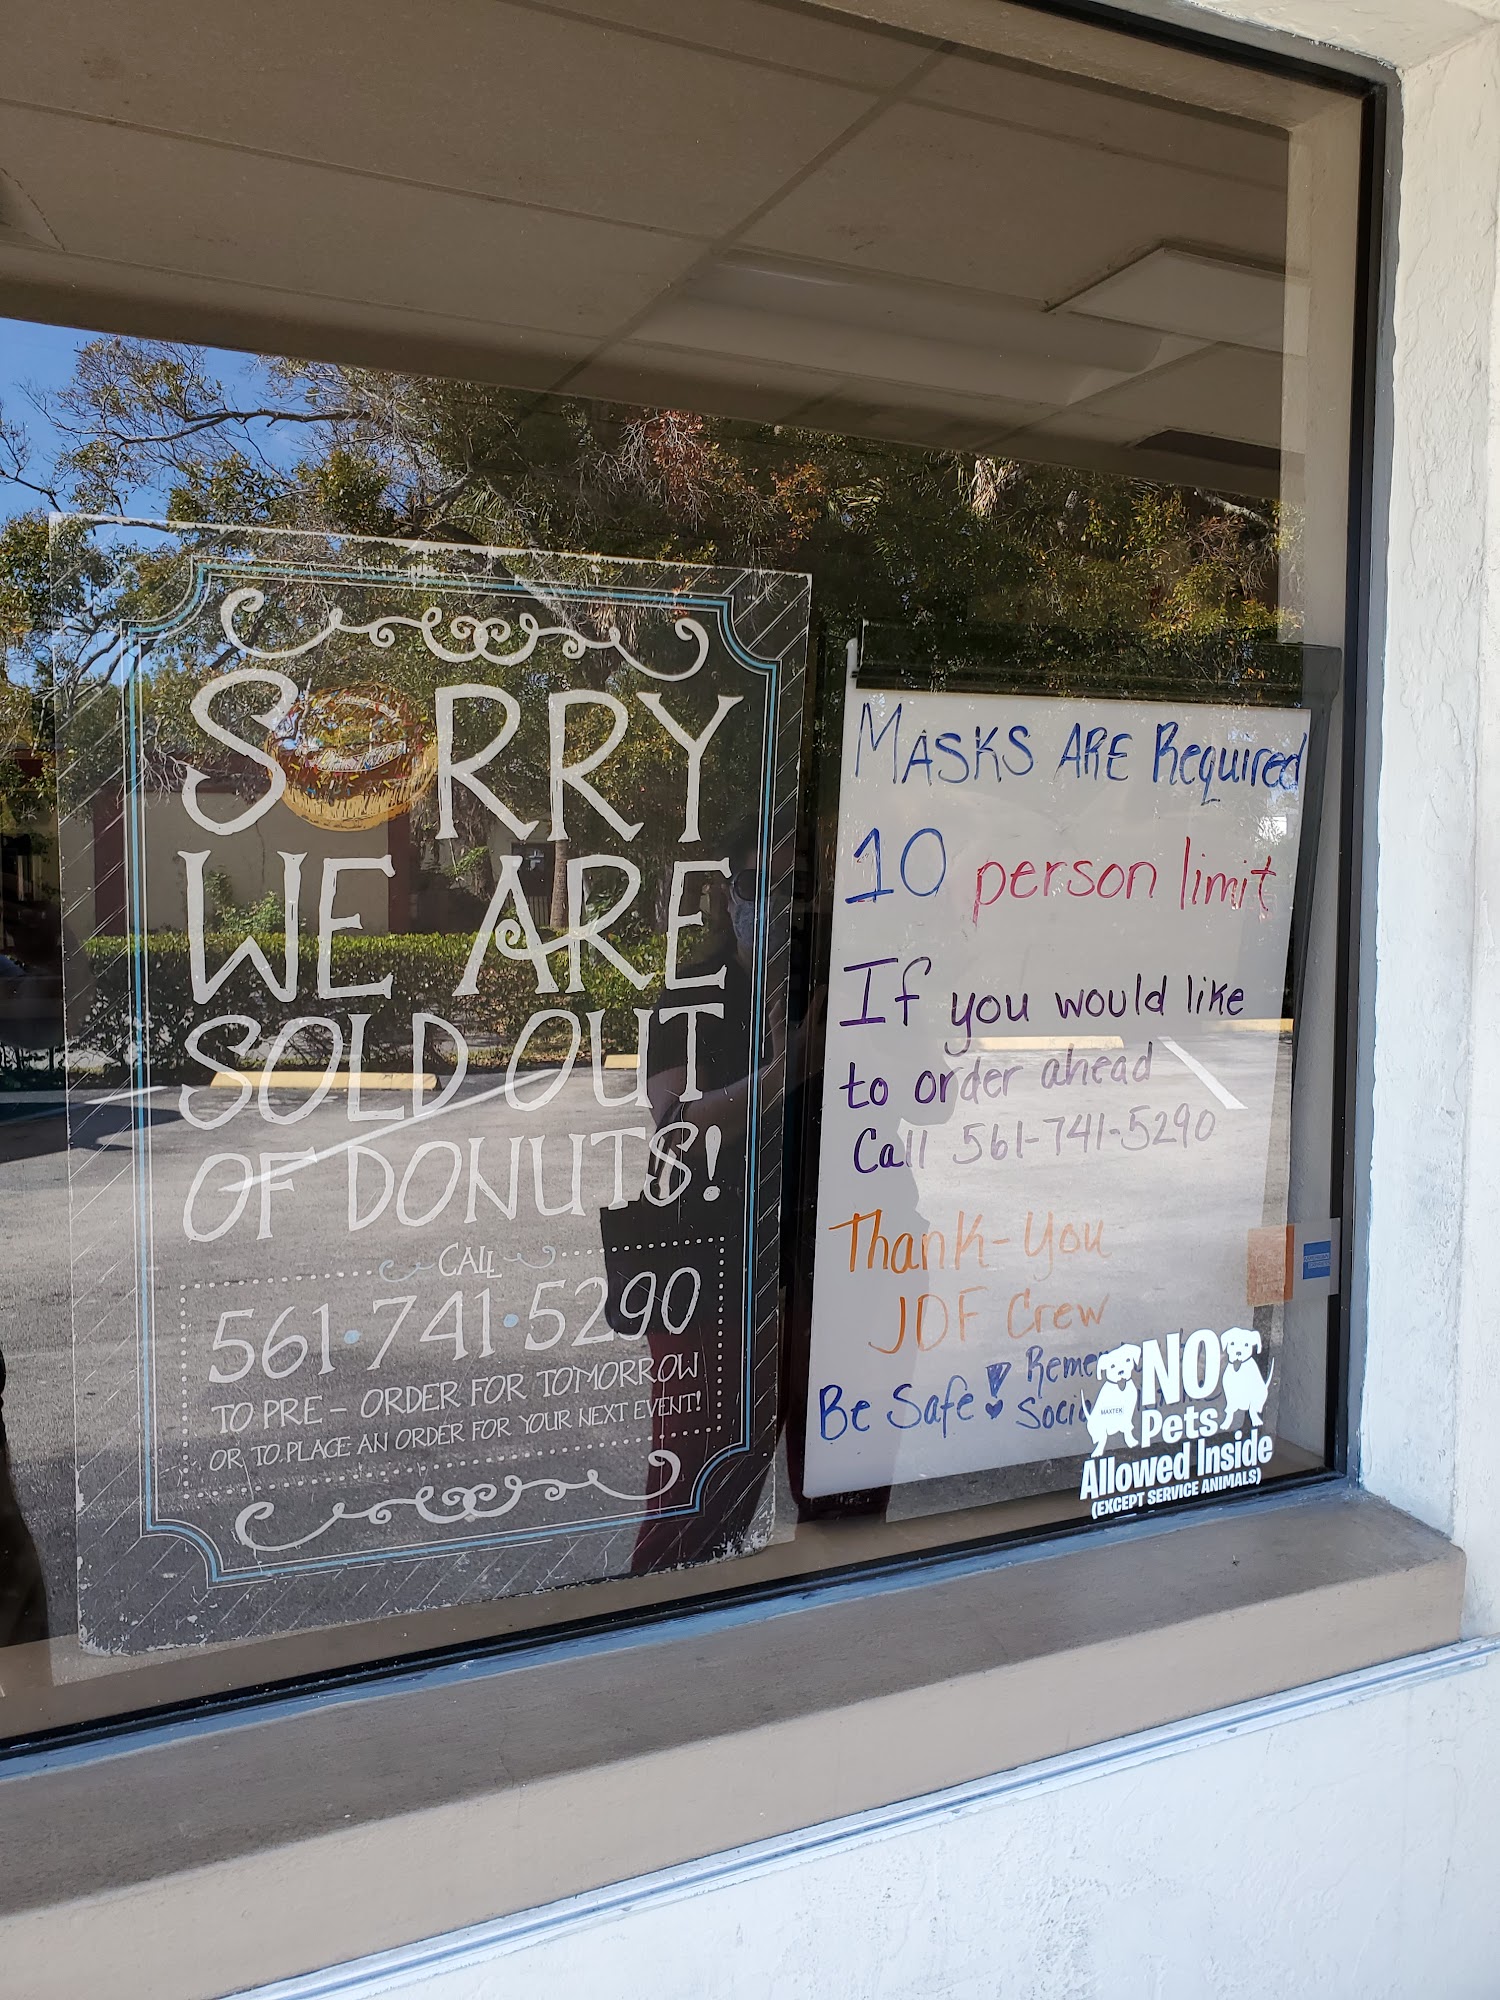 SORRY
WE ARE
SOLD OUT
OF DONUTS!
CALL
561·741·5290
TO PRE - ORDER FOR TOMORROW
OR TO PLACE AN ORDER FOR YOUR NEXT EVENT!
MASKS ARE Required
10 person limit
If you would like
to order ahead
Call 561-741-5290
Thank-You
JDF Crew
Be Safe!
NO
Pets
Allowed Inside
(EXCEPT SERVICE ANIMALS)
MAXTEK